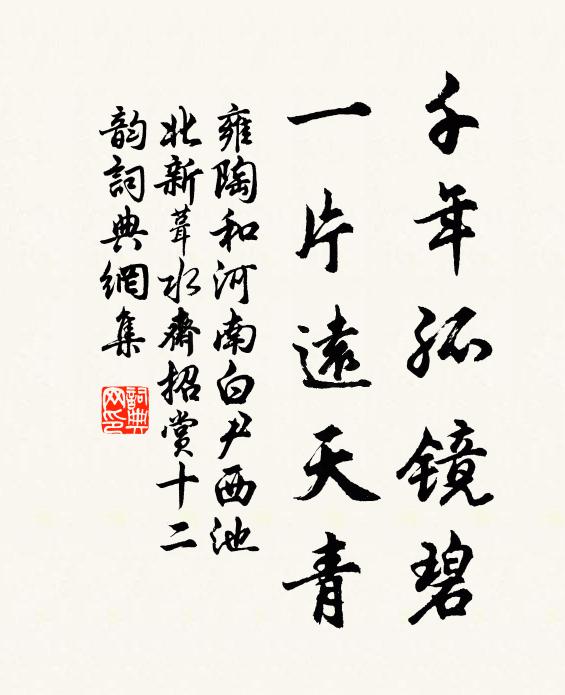 千年孤镜碧
一片遠天青
雍陶和河南白尹西池
北新葺水齋招賞十二
韵詞典網集
詞典网印